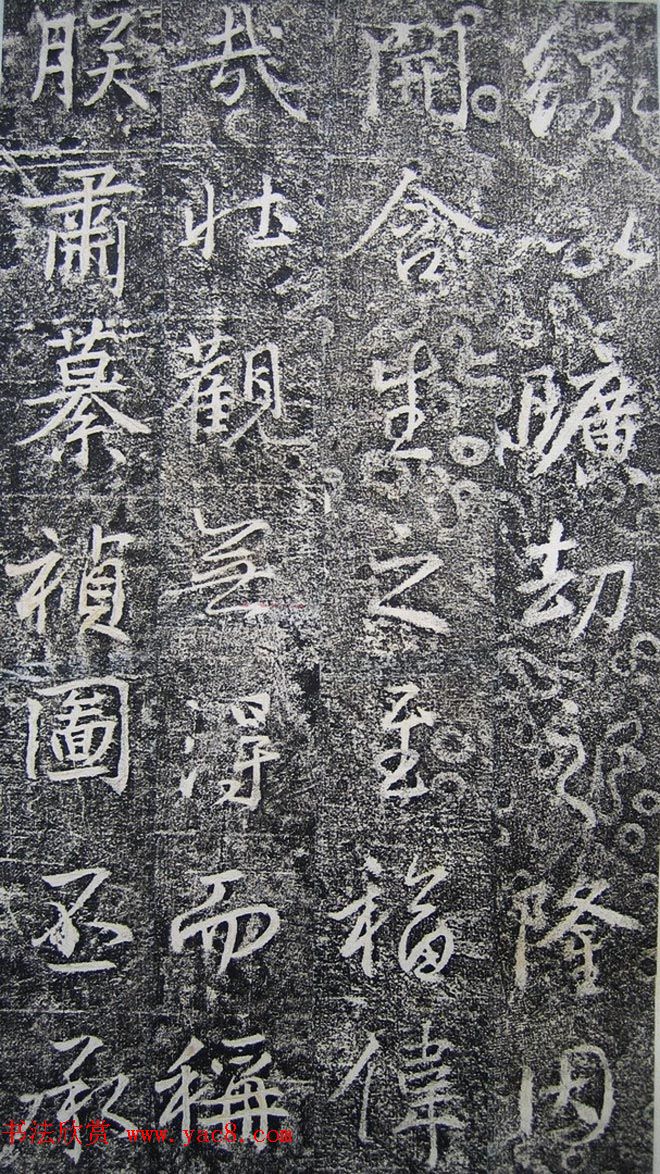 鎔以曠劫之隆因
開含生之至福偉
哉壯觀無得而稱
朕肅纂禎圖丕承
书法欣赏 www.yac8.com